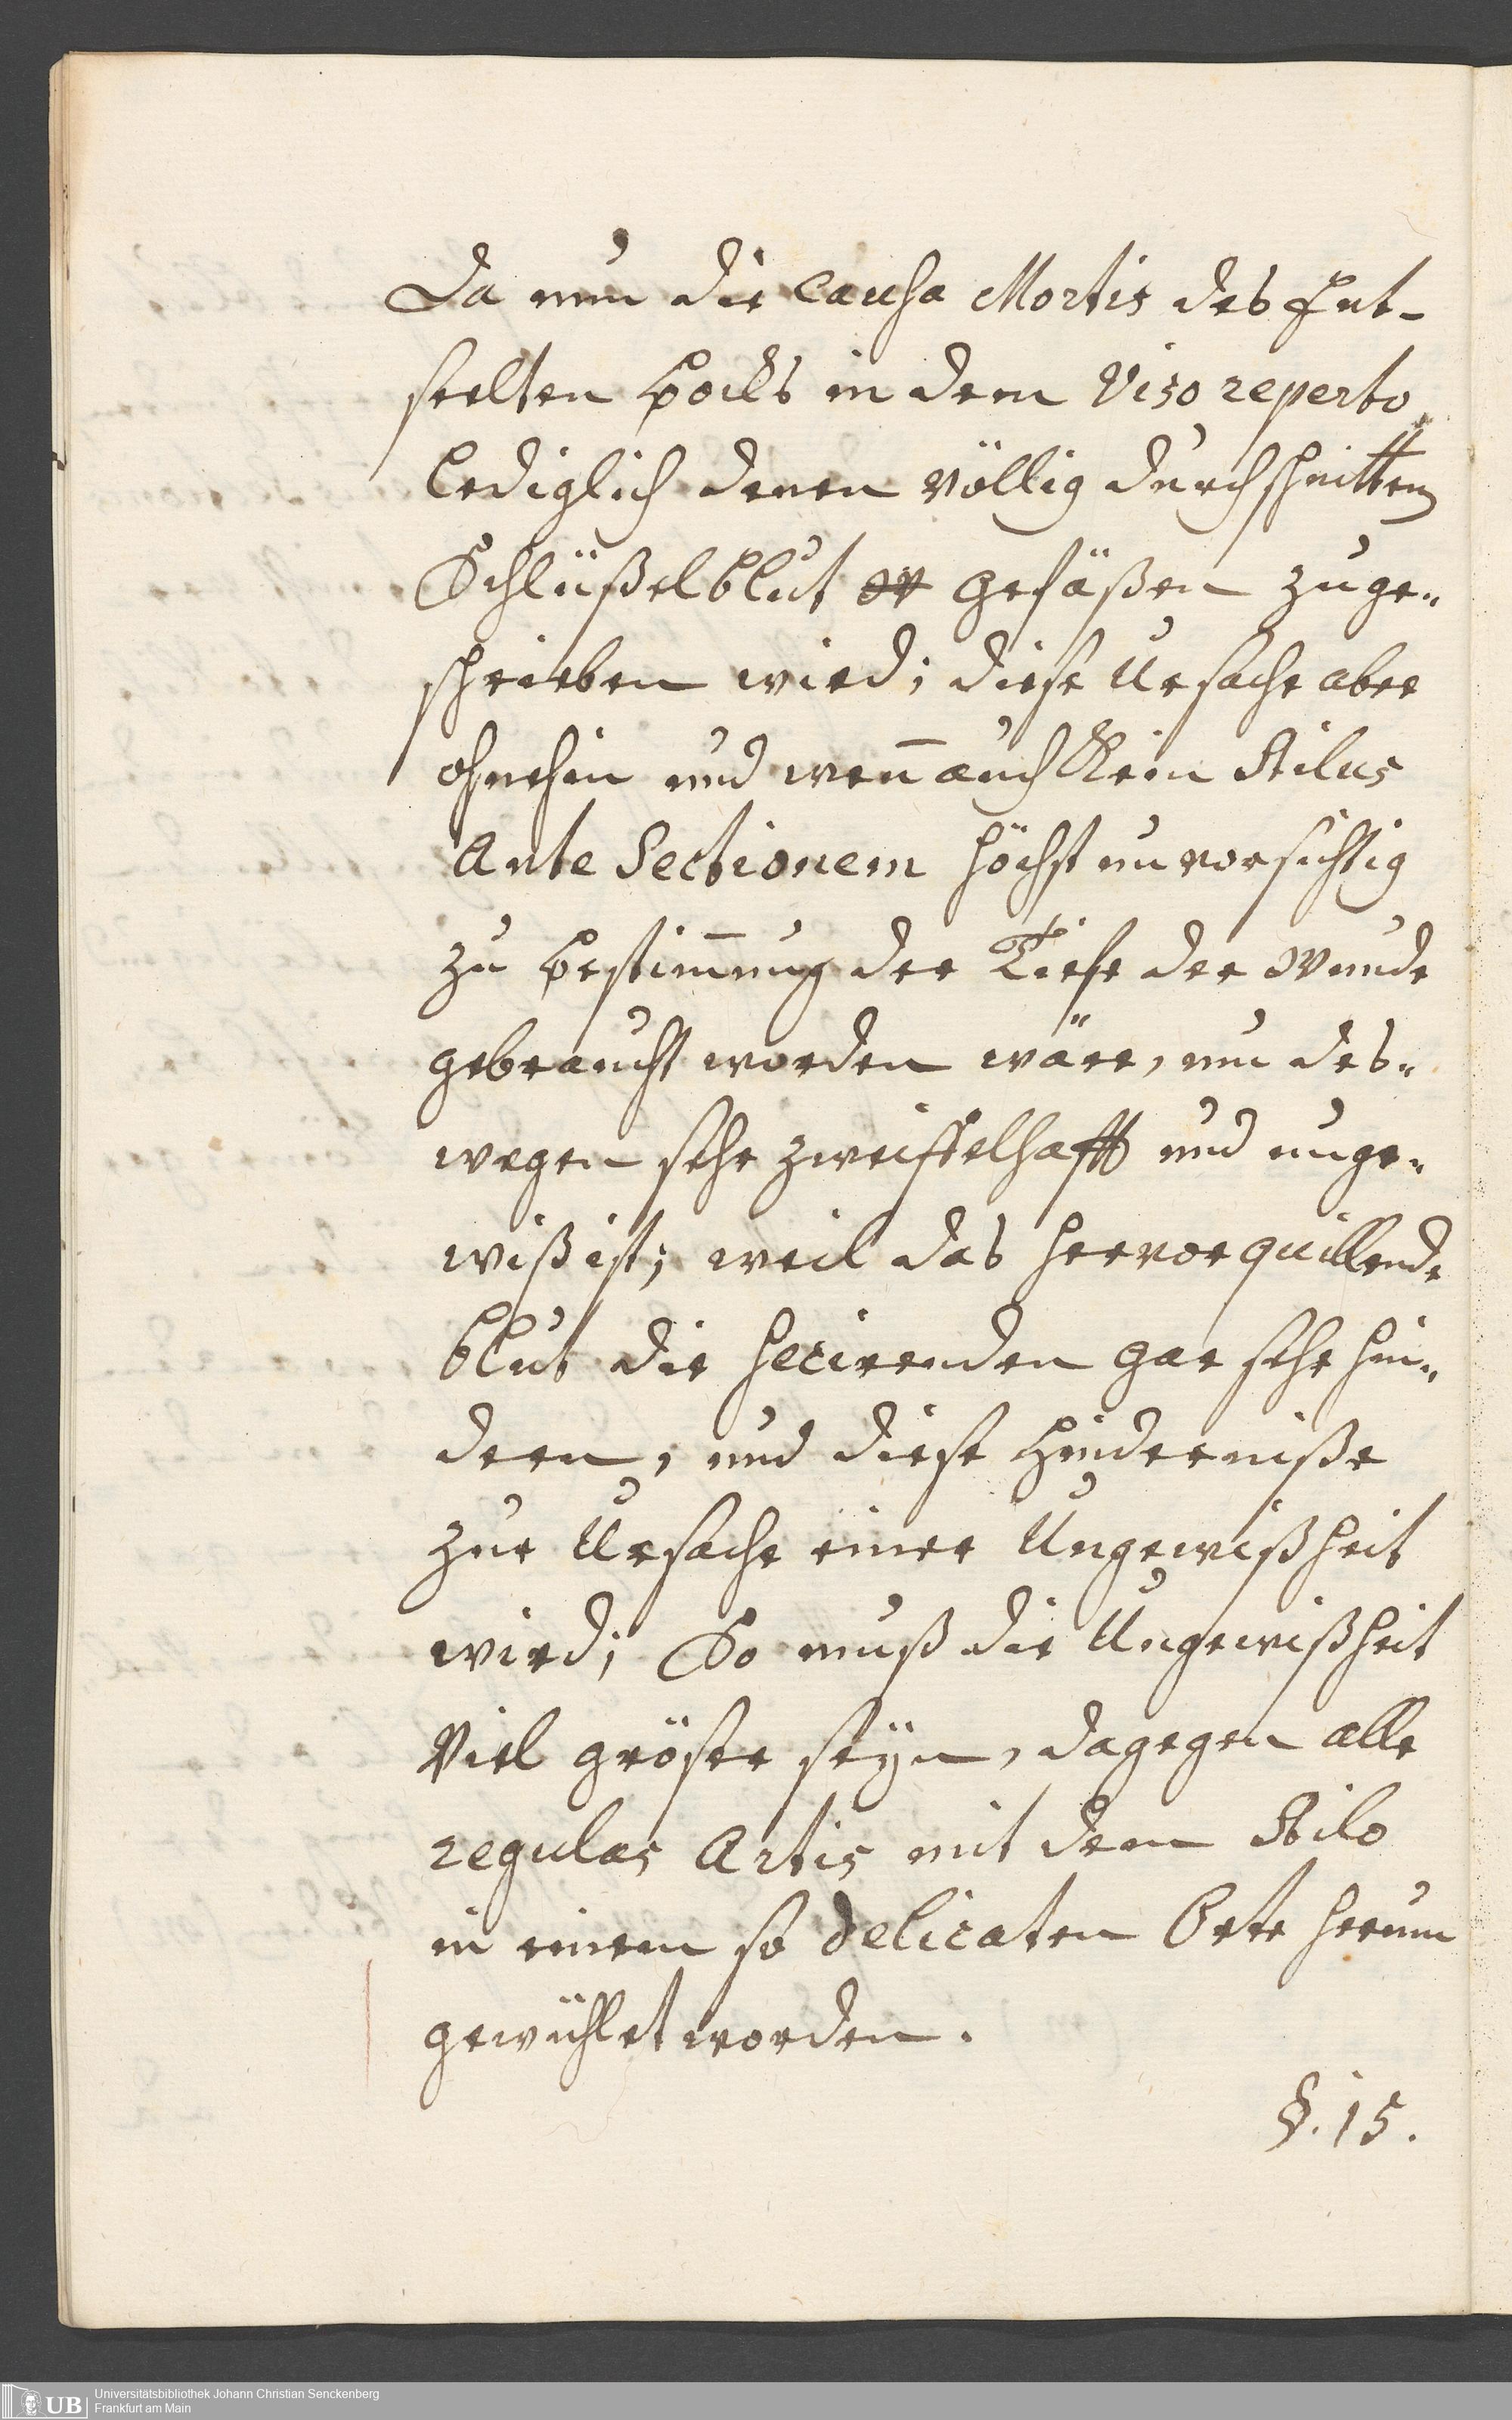 Da nun die Causa Mortis des Ent-
seelten Bocks in dem Viso reperto
lediglich denen völlig durchschnitten
Schlüßelblut Gefäßen zuge-
schrieben wird; diese Ursache aber
ohnehin und weñ auch Kein Stilus
Ante Sectionem höchst unvorsichtig
zu Bestim̄ung der Tiefe der Wunde
gebraucht worden wäre, nu des-
wegen sehr zweiffelhafft und unge-
wiß ist; weil das hervorquillende
blut die Secirenden gar sehr hin-
dern, und diese Hinderniße
zur Ursache einer Ungewißheit
wird; So muß die Ungewißheit
Viel gröser seÿn, dagegen alle
regulas Artis mit dem Stilo
in einem so delicaten Orte herum
gewühlet worden.
§. 15.
UB
Universitätsbibliothek Johann Christian Senckenberg
Frankfurt am Main